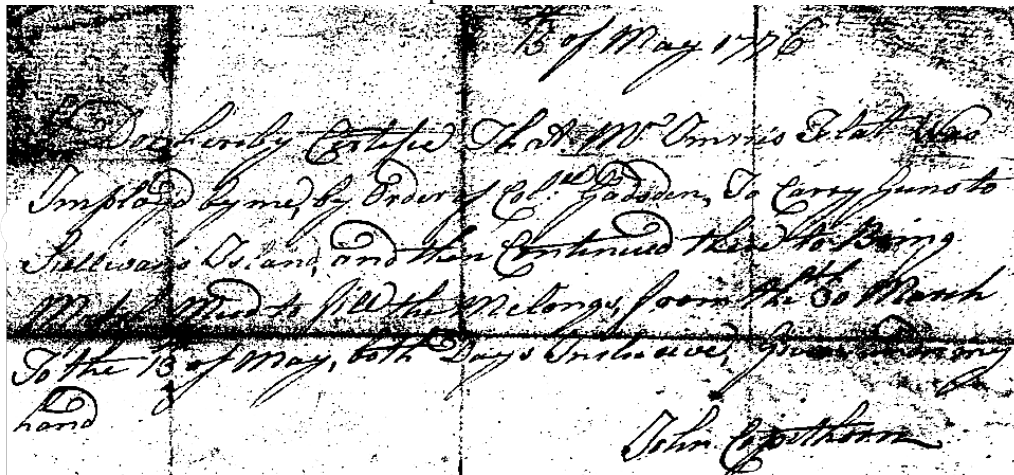 13th of May 1776
I Do hereby Certifie That Mrs Flat Was
Imployd by me, by Order of Coll. Gadsden, To Carry Guns to
Sullivans Island, and then Continued there to Bring
Mudd to fill the Melongs, from the 30th March
To the 13 of May, both Days Inclusive, Given in my
hand
John Capithorn